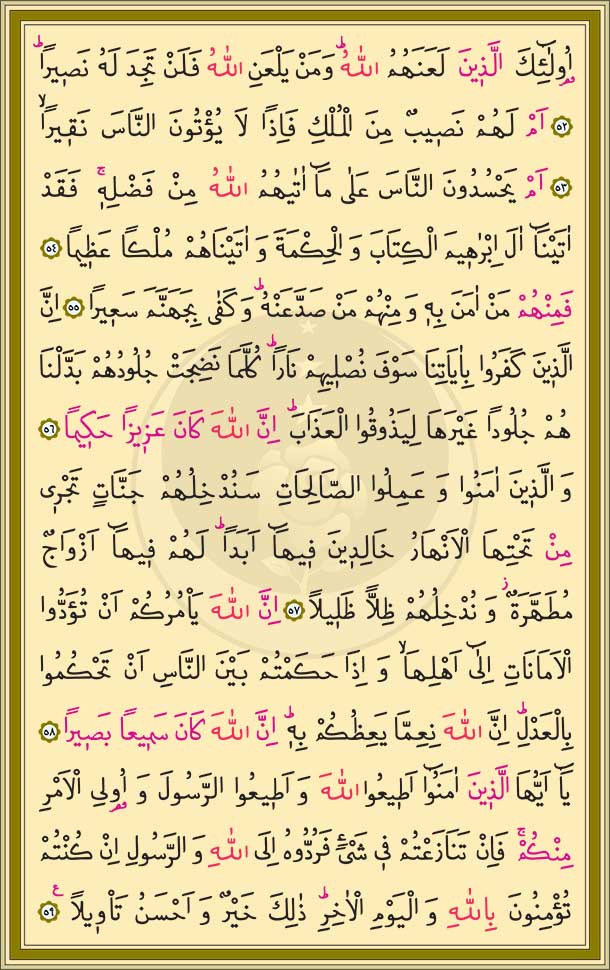 اُو۬لٰٓئِكَ الَّذ۪ينَ لَعَنَهُمُ اللّٰهُۜ وَمَنْ يَلْعَنِ اللّٰهُ فَلَنْ تَجِدَ لَهُ نَص۪يرًاۜ
﴿٥٢﴾ اَمْ لَهُمْ نَص۪يبٌ مِنَ الْمُلْكِ فَاِذًا لَا يُؤْتُونَ النَّاسَ نَق۪يرًاۙ
﴿٥٣﴾ اَمْ يَحْسُدُونَ النَّاسَ عَلٰى مَٓا اٰتٰيهُمُ اللّٰهُ مِنْ فَضْلِه۪ۚ فَقَدْ
اٰتَيْنَٓا اٰلَ اِبْرٰه۪يمَ الْكِتَابَ وَ الْحِكْمَةَ وَ اٰتَيْنَاهُمْ مُلْكًا عَظ۪يمًا ﴿٥٤﴾
فَمِنْهُمْ مَنْ اٰمَنَ بِه۪ وَ مِنْهُمْ مَنْ صَدَّ عَنْهُۜ وَ كَفٰى بِجَهَنَّمَ سَع۪يرًا ﴿٥٥﴾ اِنَّ
الَّذ۪ينَ كَفَرُوا بِاٰيَاتِنَا سَوْفَ نُصْل۪يهِمْ نَارًاۜ كُلَّمَا نَضِجَتْ جُلُودُهُمْ بَدَّلْنَا
هُمْ جُلُودًا غَيْرَهَا لِيَذُوقُوا الْعَذَابَۜ اِنَّ اللّٰهَ كَانَ عَز۪يزًا حَك۪يمًا ﴿٥٦﴾
وَ الَّذ۪ينَ اٰمَنُوا وَ عَمِلُوا الصَّالِحَاتِ سَنُدْخِلُهُمْ جَنَّاتٍ تَجْر۪ى
مِنْ تَحْتِهَا الْاَنْهَارُ خَالِد۪ينَ ف۪يهَٓا اَبَدًاۜ لَهُمْ ف۪يهَٓا اَزْوَاجٌ
مُطَهَّرَةٌۘ وَ نُدْخِلُهُمْ ظِلًّا ظَل۪يلًا ﴿٥٧﴾ اِنَّ اللّٰهَ يَاْمُرُكُمْ اَنْ تُؤَدُّوا
الْاَمَانَاتِ اِلٰٓى اَهْلِهَاۙ وَ اِذَا حَكَمْتُمْ بَيْنَ النَّاسِ اَنْ تَحْكُمُوا
بِالْعَدْلِۜ اِنَّ اللّٰهَ نِعِمَّا يَعِظُكُمْ بِه۪ۜ اِنَّ اللّٰهَ كَانَ سَم۪يعًا بَص۪يرًا ﴿٥٨﴾
يَٓا اَيُّهَا الَّذ۪ينَ اٰمَنُٓوا اَط۪يعُوا اللّٰهَ وَ اَط۪يعُوا الرَّسُولَ وَ اُو۬لِى الْاَمْرِ
مِنْكُمْۚ فَاِنْ تَنَازَعْتُمْ ف۪ى شَىْءٍ فَرُدُّوهُ اِلَى اللّٰهِ وَ الرَّسُولِ اِنْ كُنْتُمْ
تُؤْمِنُونَ بِاللّٰهِ وَ الْيَوْمِ الْاٰخِرِۜ ذٰلِكَ خَيْرٌ وَ اَحْسَنُ تَاْو۪يلًا ﴿٥٩﴾ ع